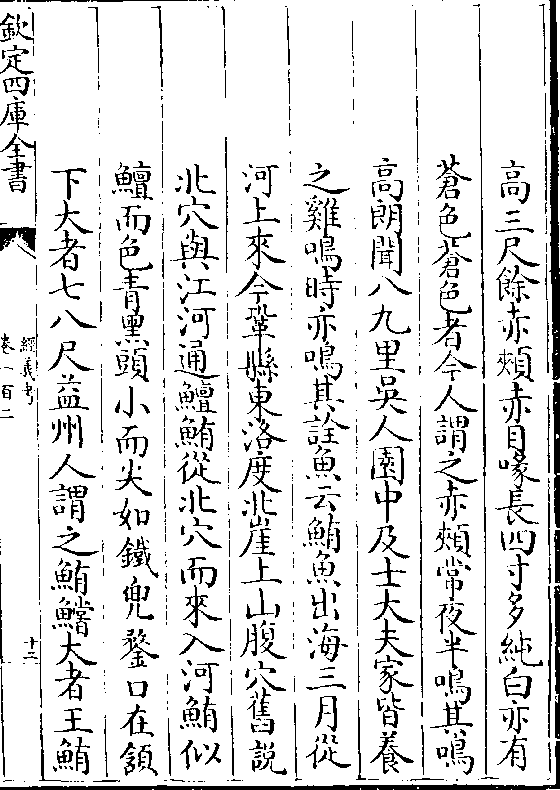 高三尺餘赤頰赤目喙長四寸多純白亦有
蒼色蒼色者今人謂之赤頰常夜半鳴其鳴
高朗聞八九里吳人園中及士大夫家皆養
之雞鳴時亦鳴其詮魚云鮪魚出海三月從
河上來今鞏縣東洛度北崖上山腹穴舊説
北穴與江河通鱣鮪從北穴而來入河鮪似
鱣而色青黑頭小而尖如鐵兜鍪口在頷
下大者七八尺益州人謂之鮪鱣大者王鮪
欽定四庫全書
經義考
卷一百二
十三